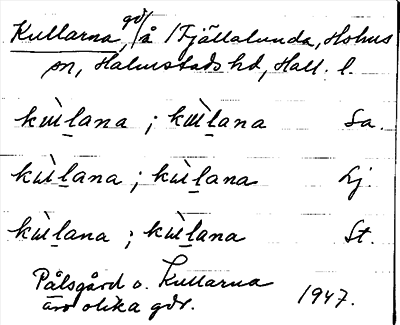 Kullarna, gd/ å /Fjällalunda, Holms
sn, Halmstads hd, Hall. l.
kùl̲ana ; kùl̲ana Sa.
kùl̲ana ; kùl̲ana Lj.
kùl̲ana ; kùl̲ana St.
Pålsgård o. Kullarna
äro olika gdr. 1947.